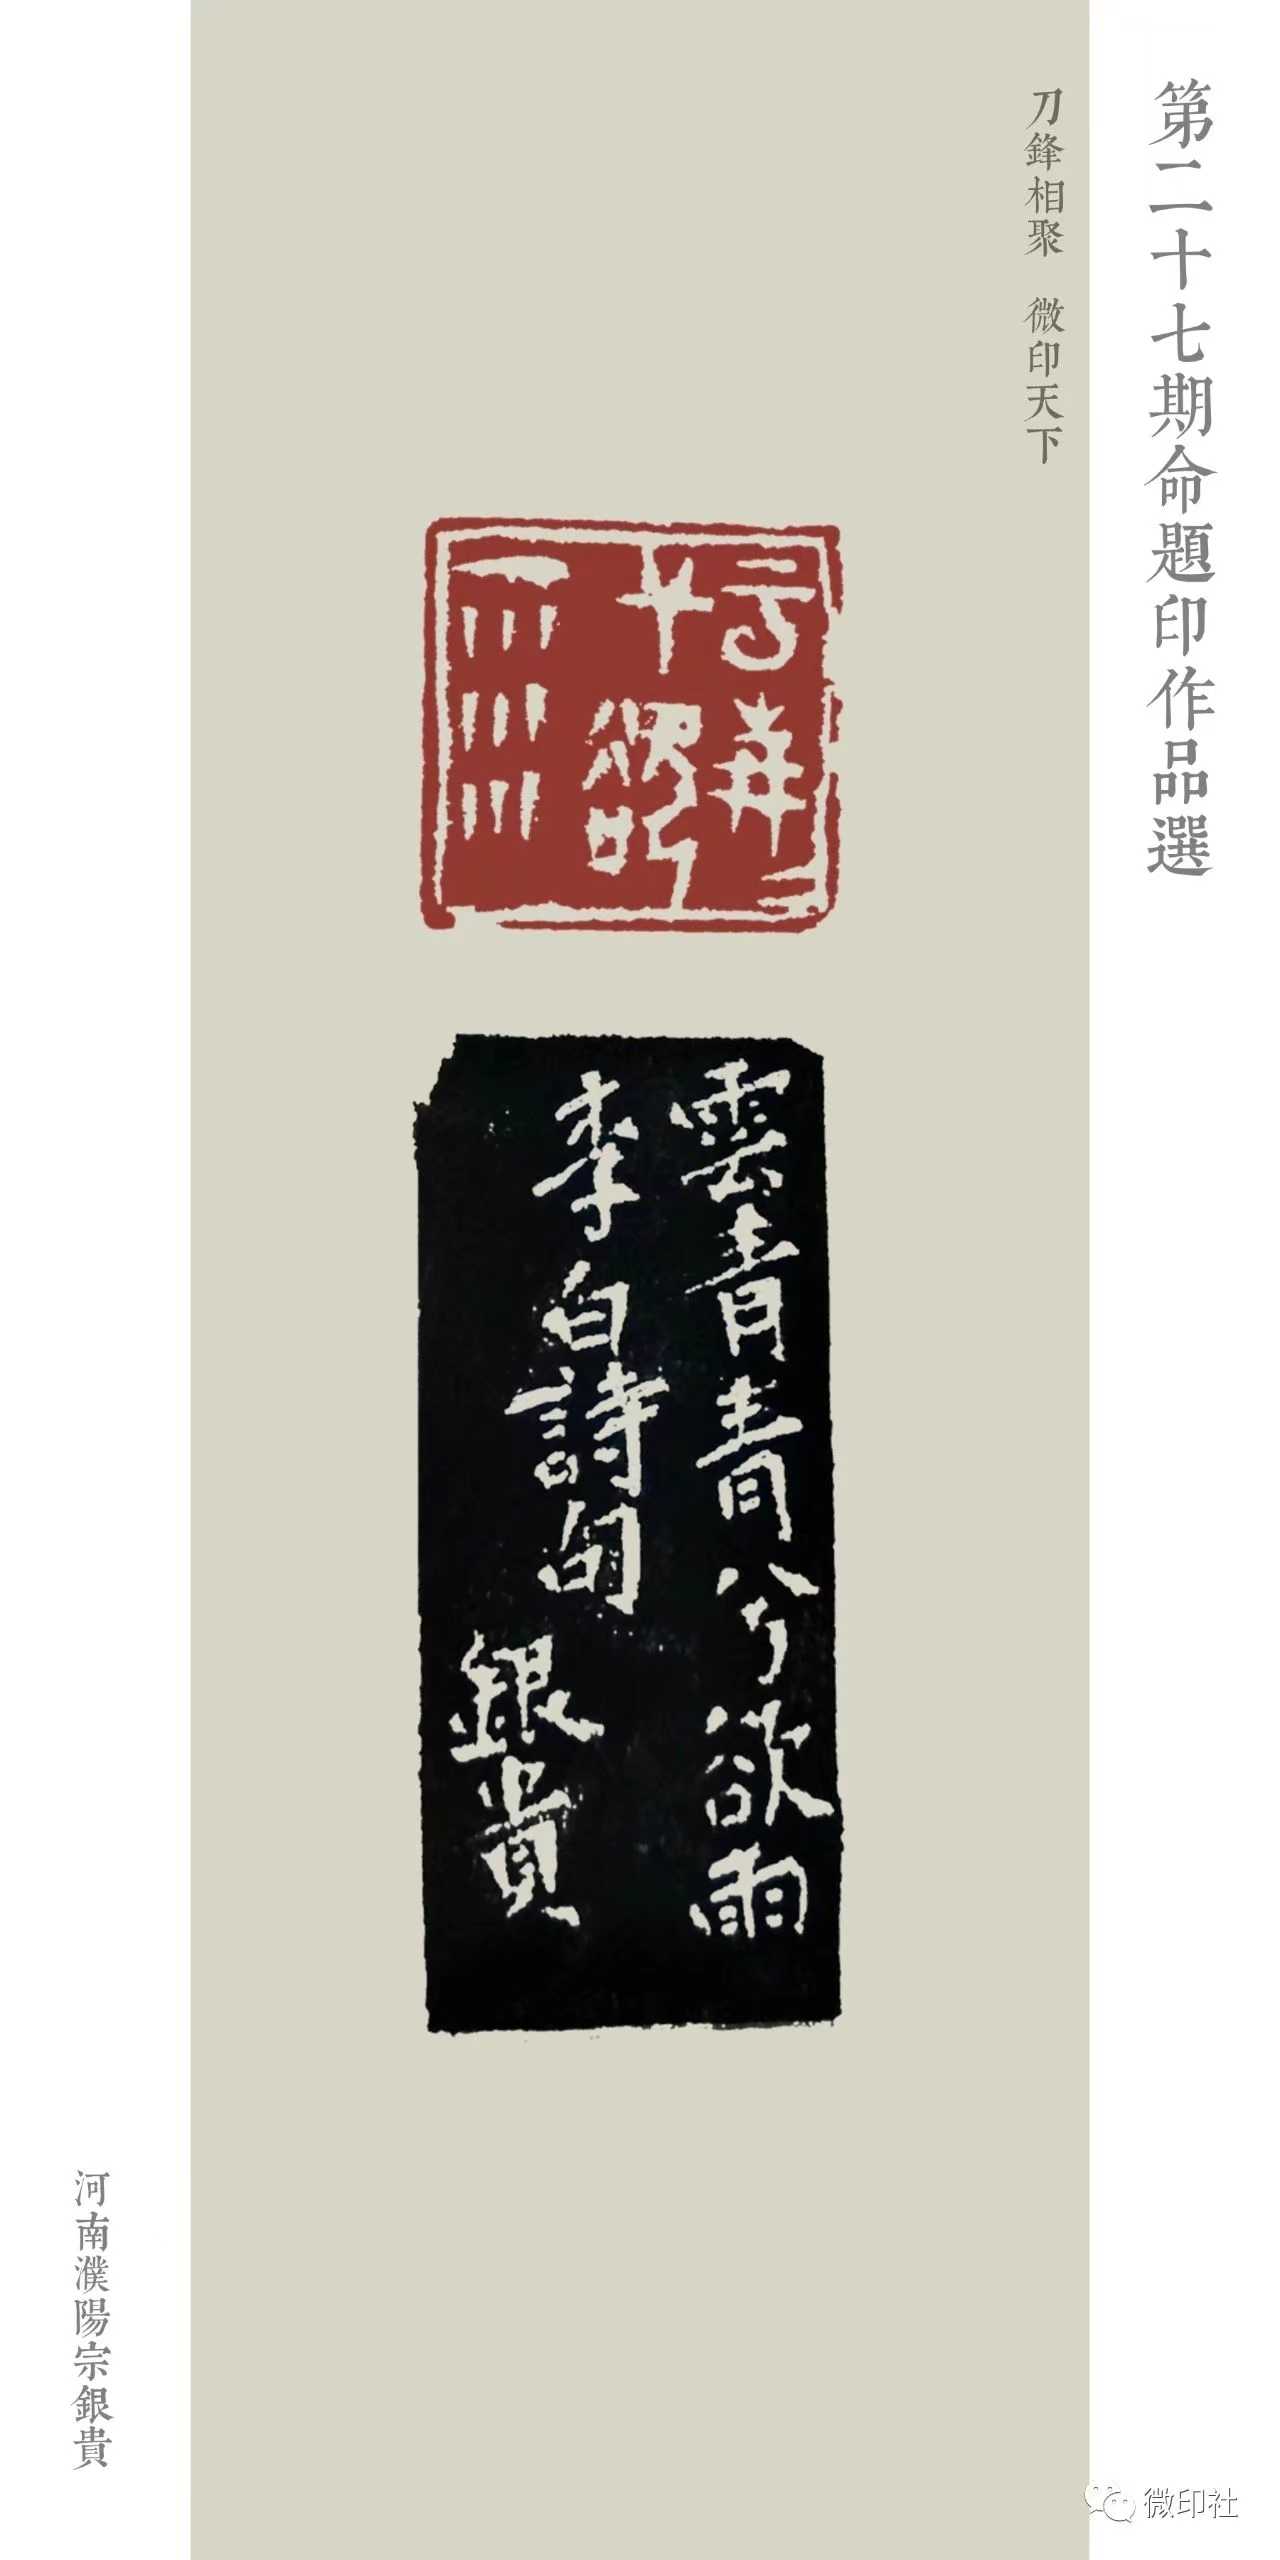 第二十七期命題印作品選
刀鋒相聚 微印天下
雲青青兮欲雨
李白詩句
銀貴
河南濮陽宗銀貴
微印社